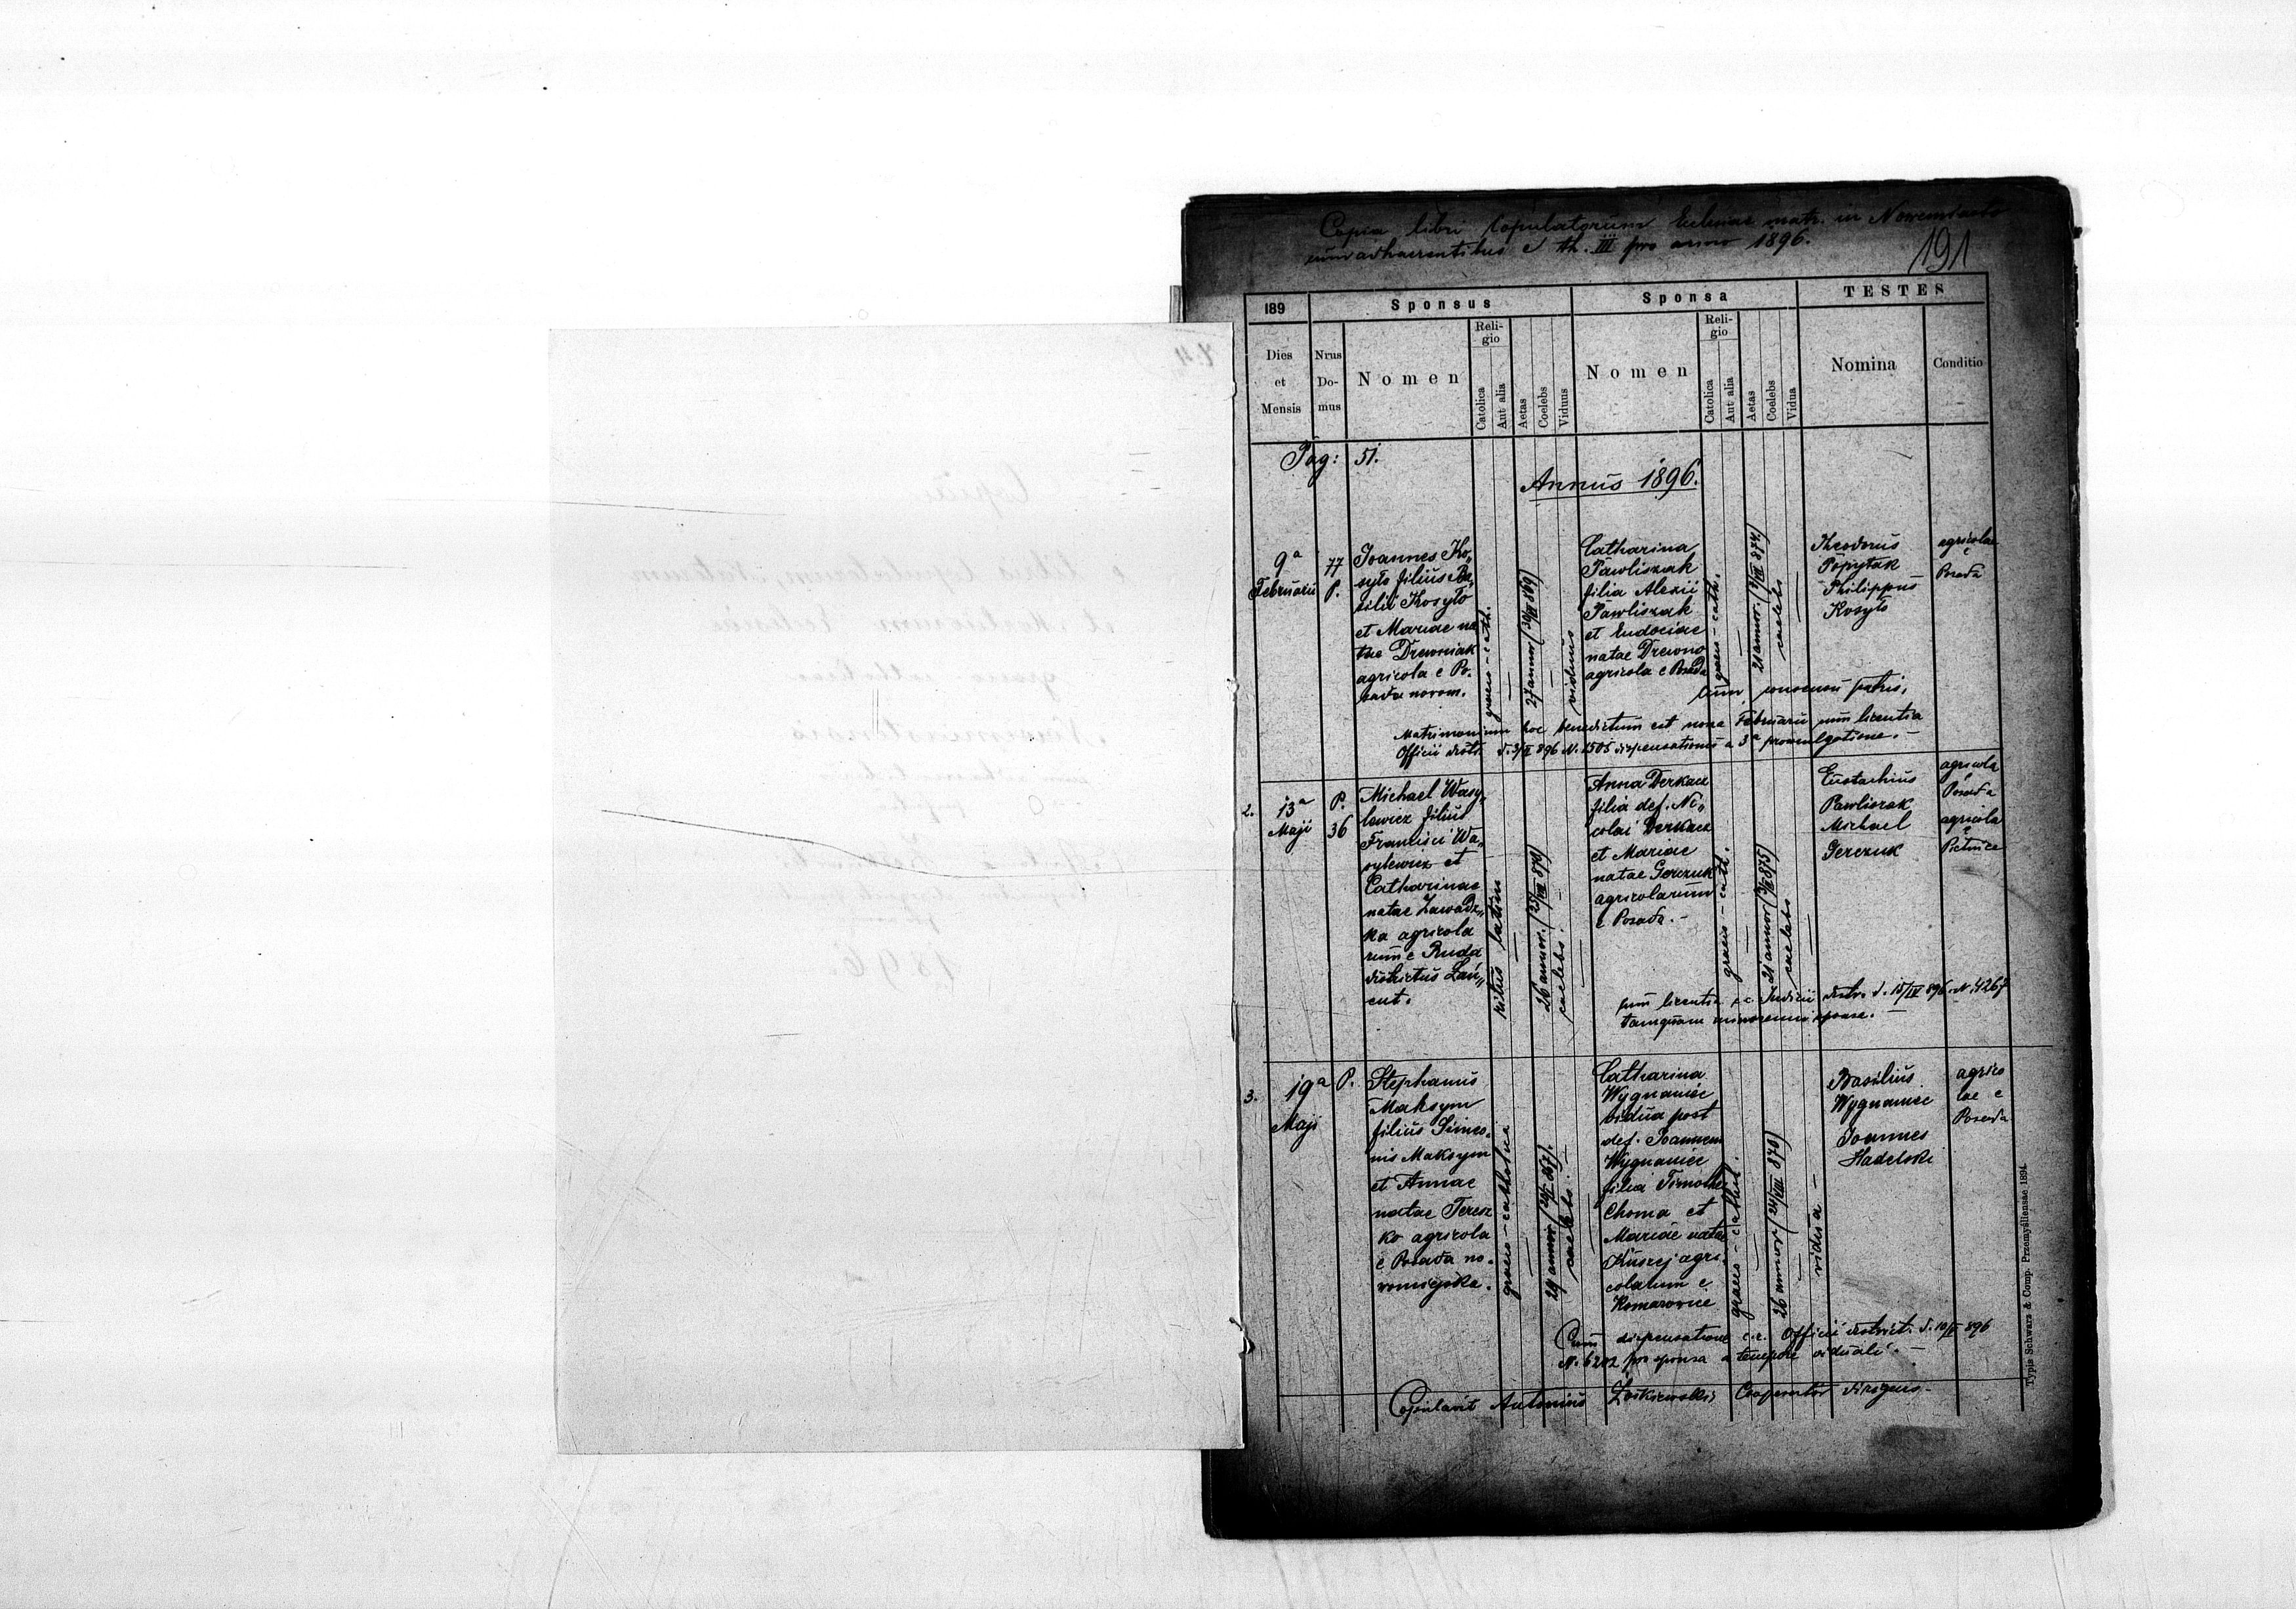 Copia libri Copulatorum Ecclesiae matr. in Novemiasto
cum adhaerentibus e th. III pro anno 1896.
191
189 Sponsus Sponsa TESTES
Dies et Mensis Nrus Domus Nomen Religio Catolica Aut alia Aetas Coelebs Viduus Nomen Religio Catolica Aut alia Aetas Coelebs Vidua Nomina Conditio
Pag: 51.
Annus 1896.
9a
Februarii
77
P.
Joannes Ko„
syło filius Ba„
silii Kosyło
et Mariae na
tae Drewniak
agricola e Po.
sada novom.
graeco-cath.
27 annor.
viduus
Catharina
Pawliszak
filia Alexii
Pawliszak
et Eudociae
natae Drewno
agricola e Posada
graeco-cath.
21 annor.
caelebs
Theodorus
Popytak
Philippus
Kosyło
agricolae
e
Posada
cum consensu patris.
Matrimonium hoc benedictum est nona Februarii cum licentia
Officii distr. d. 3/II 896 N. 2505 dispensationis a 3a promulgatione.-
2.
13a
Maji
P.
36
Michael Wasy„
lewicz filius
Francisci Wa„
sylewicz et
Catharinae
natae Zawadz„
ka agricola
rum e Ruda
districtus Łań„
cut.
ritus latini
26 annor.
caelebs.
Anna Derkacz
filia def. Ni„
colai Derkacz
et Mariae
natae Gerczuk
agricolarum
e Posada.-
graeco-cath.
21 annor.
caelebs
Eustachius
Pawliszak
Michael
Gerczuk
agricola
e
Posada
agricola
e
Pietnice
cum licentia c.c. Judicii distr. d. 15/IV 896. N. 4267
tamquam minorennis sponsae.-
3.
19a
Maji
P.
Stephanus
Maksym
filius Simeo„
nis Maksym
et Annae
natae Teresz
ko agricola
e Posada no„
womiejska.
graeco-catholica
29 annor.
caelebs.-
Catharina
Wygnaniec
vidua post
def. Joannem
Wygnaniec
filia Timothei
Choma et
Mariae natae
Kuszej agri„
colarum e
Komarowice
graeco-cathol.
26 annor.
vidua -
Basilius
Wygnaniec
Joannes
Hadelski
agrico
lae e
Posada
Cum dispensatione c.r. Officii district. d. 10/V 896
N. 6202 pro sponsa a tempore viduali.-
Copulavit Antonius Cooperator dirigens.-
Typis Schwarz & Comp. Przemysliensae 1894.